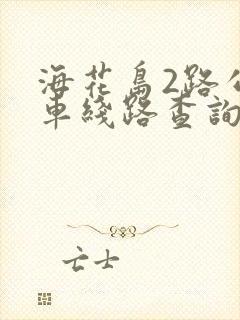 海花島2路公
車綫路查詢
亡士